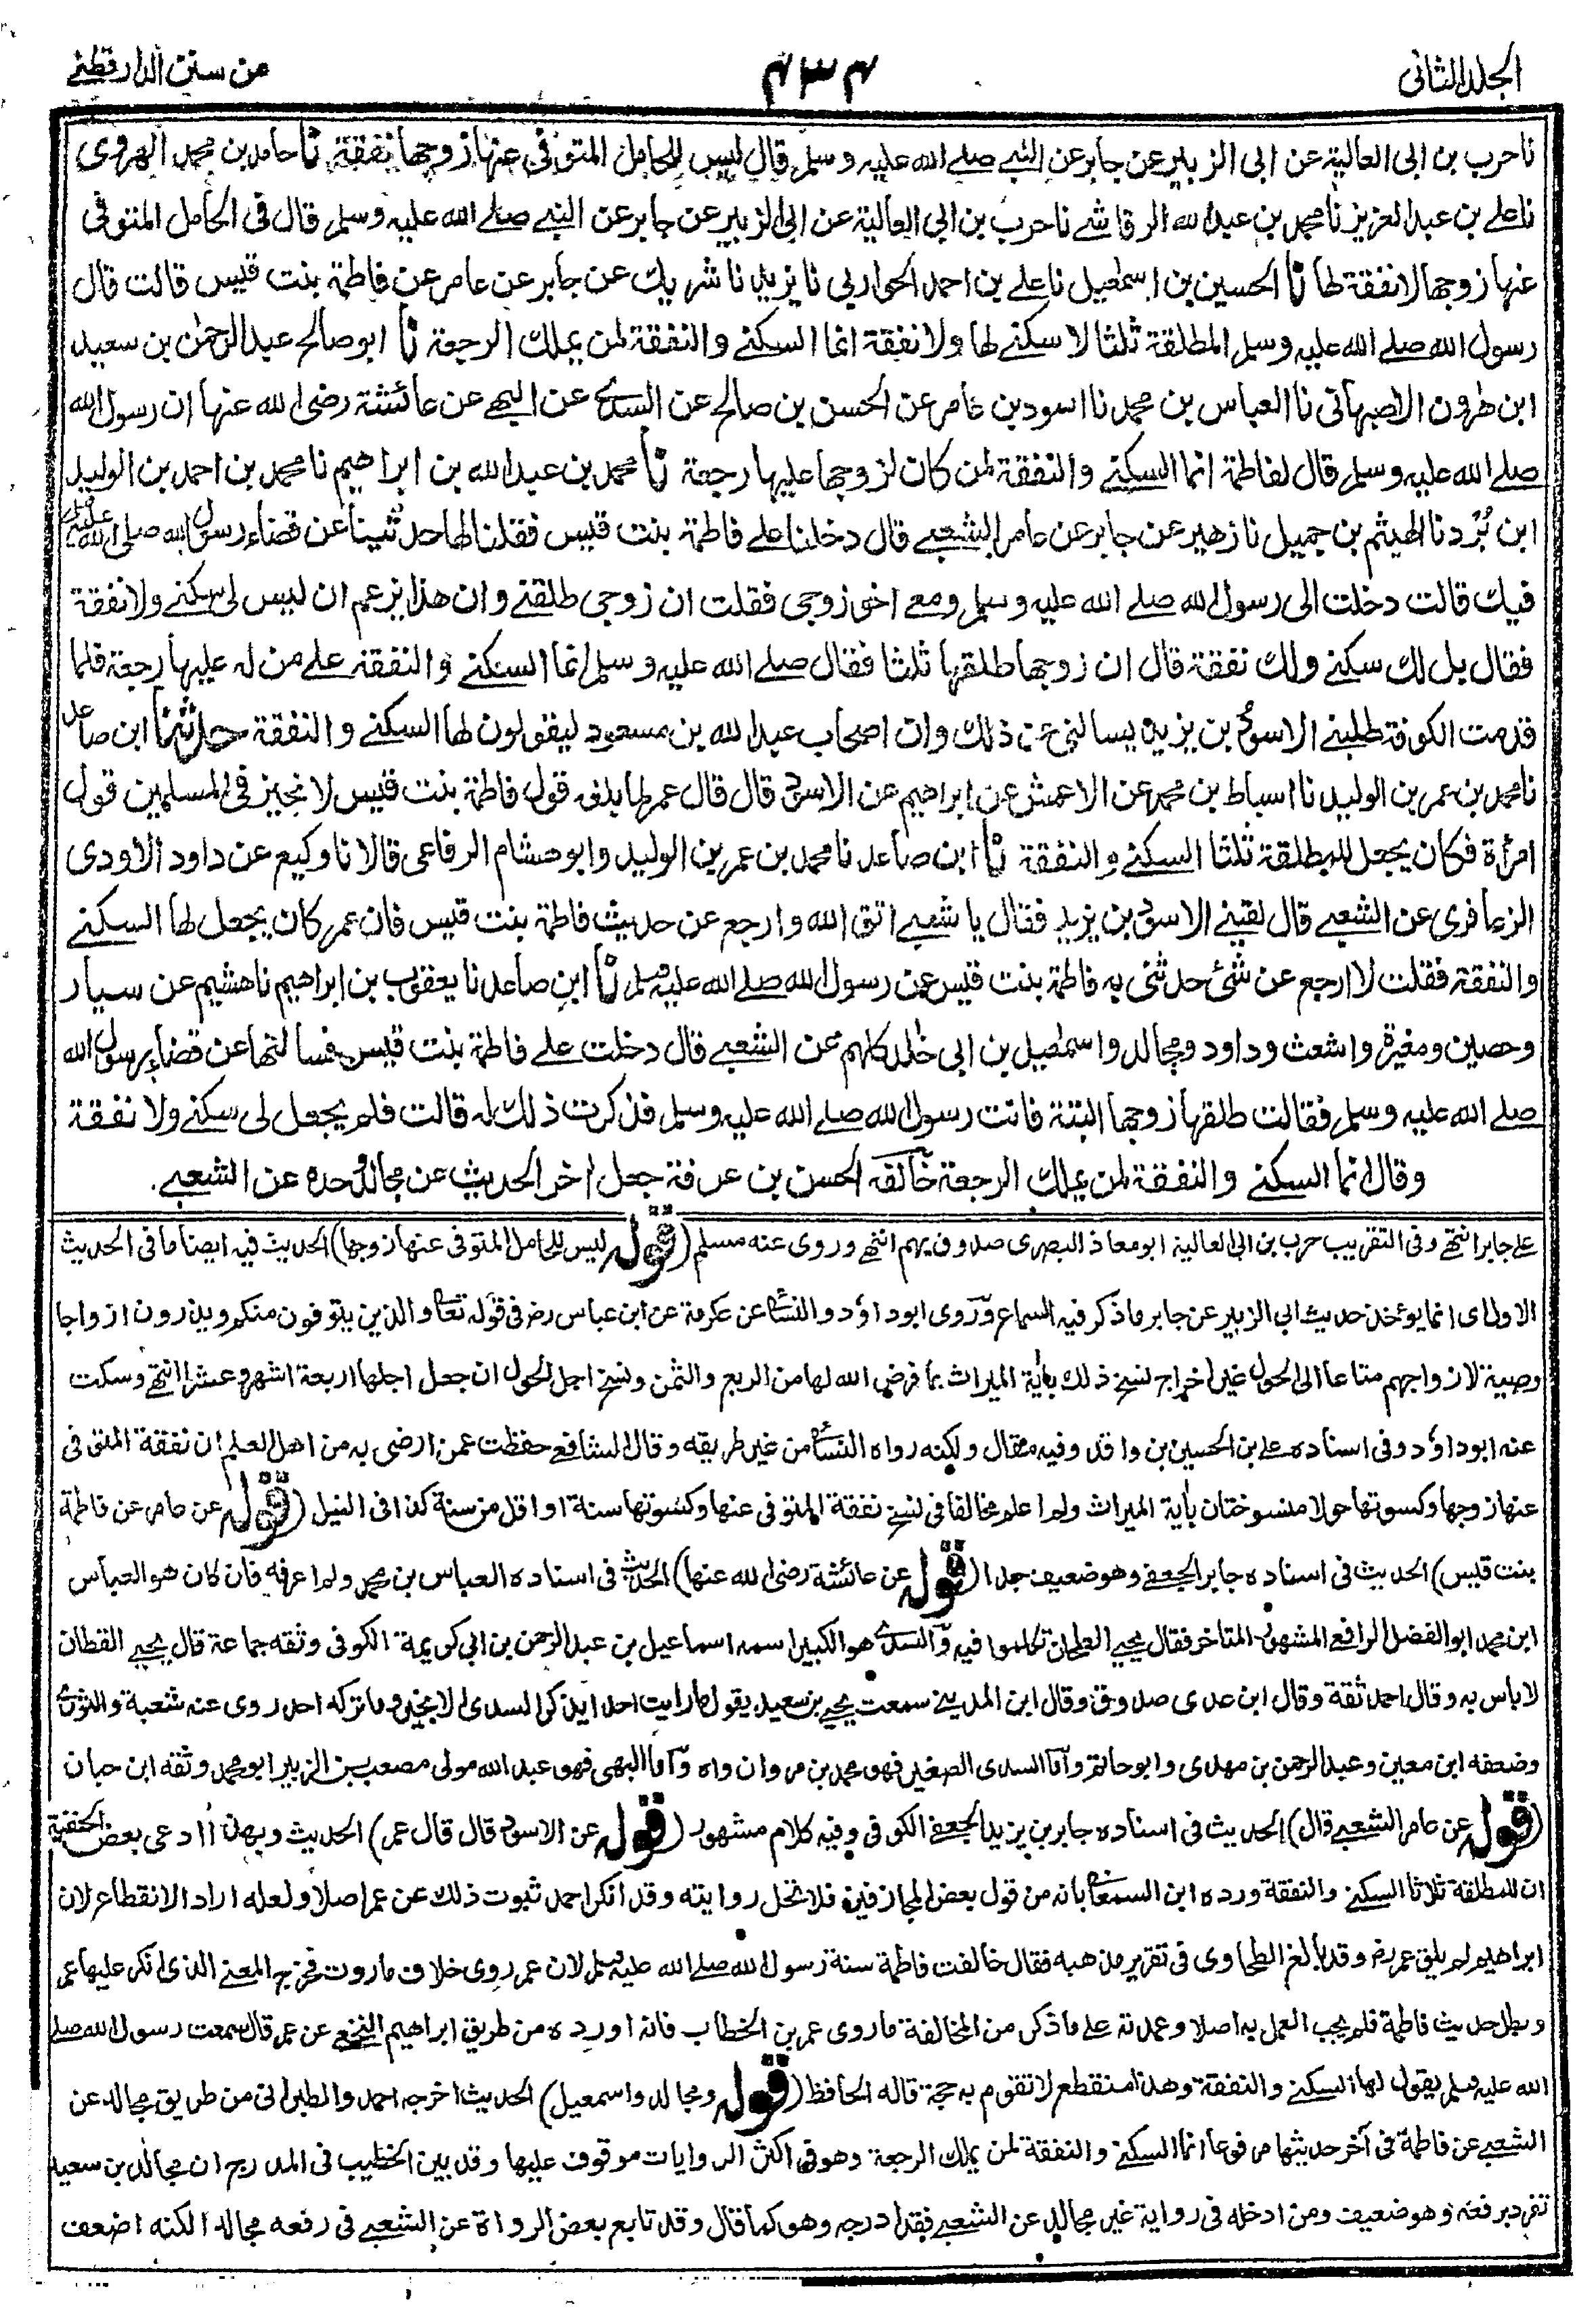 الجلد الثانى
٤٣٤
من سنن الدارقطنے
نا حرب بن ابى العالية عن ابى الزبير عن جابر عن النبے صلے الله عليه وسلم قال ليس للحامل المتوفى عنها زوجها نفقة نا حامد بن محمد الهروى
نا علے بن عبد العزيز نا محمد بن عبد الله الرقاشے نا حرب بن ابى العالية عن ابى الزبير عن جابر عن النبے صلے الله عليه وسلم قال فى الحامل المتوفى
عنها زوجها لا نفقة لها نا الحسين بن اسمعيل نا علے بن احمد الجواربى نا يزيد نا شريك عن جابر عن عامر عن فاطمة بنت قيس قالت قال
رسول الله صلے الله عليه وسلم المطلقة ثلثا لا سكنے لها ولا نفقة انما السكنے والنفقة لمن يملك الرجعة نا ابو صالح عبد الرحمن بن سعيد
ابن هرون الاصبهانى نا العباس بن محمد نا اسود بن عامر عن الحسن بن صالح عن السدے عن البهے عن عائشة رضى الله عنها ان رسول الله
صلے الله عليه وسلم قال لفاطمة انما السكنے والنفقة لمن كان لزوجها عليها رجعة نا محمد بن عبد الله بن ابراهيم نا محمد بن احمد بن الوليد
ابن بُرْد نا الهيثم بن جميل نا زهير عن جابر عن عامر الشعبے قال دخلنا علے فاطمة بنت قيس فقلنا لها حدثينا عن قضاء رسول الله صلى الله عليه وسلم
فيك قالت دخلت الى رسول الله صلے الله عليه وسلم ومعے اخو زوجى فقلت ان زوجى طلقنے وان هذا يزعم ان ليس لى سكنے ولا نفقة
فقال بل لك سكنے ولك نفقة قال ان زوجها طلقها ثلثا فقال صلے الله عليه وسلم انما السكنے والنفقة علے من له عليها رجعة فلما
قدمت الكوفة طلبنے الاسود بن يزيد يسالنى عن ذلك وان اصحاب عبد الله بن مسعود ليقولون لها السكنے والنفقة حدثنا ابن صاعد
نا محمد بن عمر بن الوليد نا اسباط بن محمد عن الاعمش عن ابراهيم عن الاسود قال قال عمر لما بلغه قول فاطمة بنت قيس لا نجيز فى المسلمين قول
امرأة فكان يجعل للمطلقة ثلثا السكنے والنفقة نا ابن صاعد نا محمد بن عمر بن الوليد وابو هشام الرفاعى قالا نا وكيع عن داود الاودى
الزعافرى عن الشعبے قال لقينے الاسود بن يزيد فقال يا شعبے اتق الله وارجع عن حديث فاطمة بنت قيس فان عمر كان يجعل لها السكنے
والنفقة فقلت لا ارجع عن شئ حدثنى به فاطمة بنت قيس عن رسول الله صلے الله عليه وسلم نا ابن صاعد نا يعقوب بن ابراهيم نا هشيم عن سيار
وحصين ومغيرة واشعث وداود ومجالد واسمعيل بن ابى خالد كلهم عن الشعبے قال دخلت علے فاطمة بنت قيس فسالتها عن قضاء رسول الله
صلے الله عليه وسلم فقالت طلقها زوجها البتة فاتت رسول الله صلے الله عليه وسلم فذكرت ذلك له قالت فلم يجعل لى سكنے ولا نفقة
وقال انما السكنے والنفقة لمن يملك الرجعة خالفه الحسن بن عرفة جعل اخر الحديث عن مجالد وحده عن الشعبے.
علے جابر انتهے وفى التقريب حرب بن ابى العالية ابو معاذ البصرى صدوق يهم انتهے وروى عنه مسلم (قوله ليس للحامل المتوفى عنها زوجها) الحديث فيه ايضا ما فى الحديث
الاول اى انما يوخذ حديث ابى الزبير عن جابر ما ذكر فيه السماع وروى ابو داود والنسائى عن عكرمة عن ابن عباس رض فى قوله تعالى والذين يتوفون منكم ويذرون ازواجا
وصية لازواجهم متاعا الى الحول غير اخراج نسخ ذلك باية الميراث بما فرض الله لها من الربع والثمن ونسخ اجل الحول ان جعل اجلها اربعة اشهر وعشرا انتهے وسكت
عنه ابو داود وفى اسناده علے بن الحسين بن واقد وفيه مقال ولكنه رواه النسائى من غير طريقه وقال الشافعے حفظت عمن ارضى به من اهل العلم ان نفقة المتوفى
عنها زوجها وكسوتها حولا منسوختان باية الميراث ولم اعلم مخالفا فى نسخ نفقة المتوفى عنها وكسوتها سنة او اقل من سنة كذا فى النيل (قوله عن عامر عن فاطمة
بنت قيس) الحديث فى اسناده جابر الجعفے وهو ضعيف جدا (قوله عن عائشة رضى الله عنها) الحديث فى اسناده العباس بن محمد ولم اعرفه فان كان هو العباس
ابن محمد ابو الفضل الرافعے المشهور المتاخر فقال يحيے الطحان تكلموا فيه والسدے هو الكبير اسمه اسماعيل بن عبد الرحمن بن ابى كريمة الكوفى وثقه جماعة قال يحيے القطان
لا باس به وقال احمد ثقة وقال ابن عدى صدوق وقال ابن المدينے سمعت يحيے بن سعيد يقول ما رايت احدا يذكر السدى الا بخير وما تركه احد روى عنه شعبة والثورے
وضعفه ابن معين وعبد الرحمن بن مهدى وابو حاتم واما السدى الصغير فهو محمد بن مروان واه واما البهى فهو عبد الله مولى مصعب بن الزبير ابو محمد وثقه ابن حبان
(قوله عن عامر الشعبے قال) الحديث فى اسناده جابر بن يزيد الجعفے الكوفى وفيه كلام مشهور (قوله عن الاسود قال قال عمر) الحديث وبهذا ادعى بعض الحنفية
ان للمطلقة ثلاثا السكنے والنفقة ورده ابن السمعانى بانه من قول بعض المجازفين فلا تحل روايته وقد انكر احمد ثبوت ذلك عن عمر اصلا ولعله اراد الانقطاع لان
ابراهيم لم يلق عمر رض وقد بالغ الطحاوى فى تقرير مذهبه فقال خالفت فاطمة سنة رسول الله صلے الله عليه وسلم لان عمر روى خلاف ما روت فخرج المعنے الذى انكر عليها عمر
وبطل حديث فاطمة فلم يجب العمل به اصلا وعمدته علے ما ذكر من المخالفة ما روى عمر بن الخطاب فانه اورده من طريق ابراهيم النخعے عن عمر قال سمعت رسول الله صلے
الله عليه وسلم يقول لها السكنے والنفقة وهذا منقطع لا تقوم به حجة قاله الحافظ (قوله ومجالد واسمعيل) الحديث اخرجه احمد والطبرانى من طريق مجالد عن
الشعبے عن فاطمة فى آخر حديثها مرفوعا انما السكنے والنفقة لمن يملك الرجعة وهو فى اكثر الروايات موقوف عليها وقد بين الخطيب فى المدرج ان مجالد بن سعيد
تفرد برفعه وهو ضعيف ومن ادخله فى رواية غير مجالد عن الشعبے فقد ادرجه وهو كما قال وقد تابع بعض الرواة عن الشعبے فى رفعه مجالدا لكنه اضعف